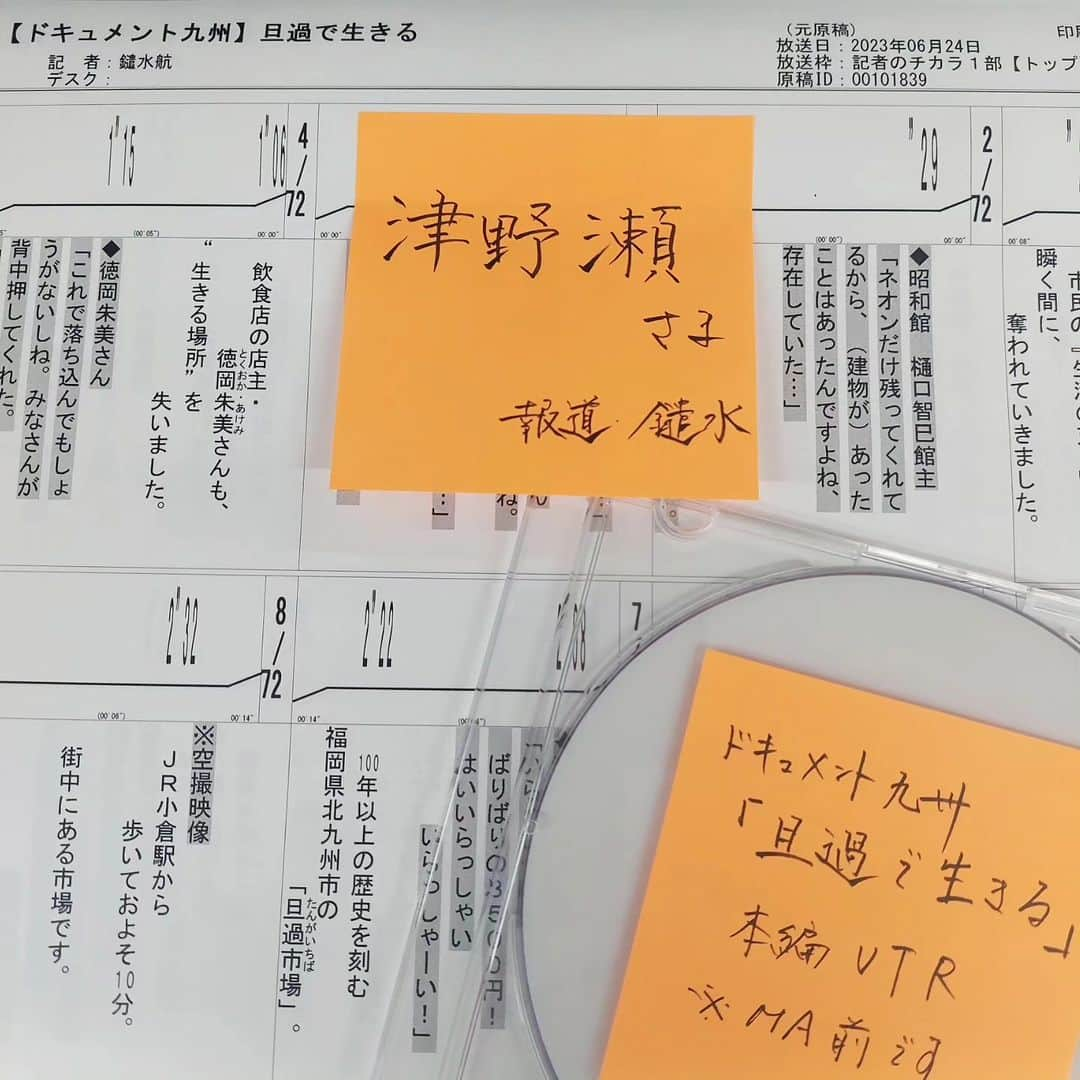 【ドキュメント九州】旦過で生きる
記　者：鑓水航
デスク：
（元原稿）
放送日：2023年06月24日
放送枠：記者のチカラ１部【トップ
原稿ID：00101839
2/72
"29
(00'00")
00'00"
00'08"
瞬く間に、
奪われていきました。
◆昭和館　樋口智巳館主
「ネオンだけ残ってくれて
るから、（建物が）あった
ことはあったんですよね、
存在していた…」
津野瀬
さま
報道・鑓水
4/72
1"06
1"15
(00'05")
00'00"
飲食店の店主・
徳岡朱美さんも、
とくおか・あけみ
“生きる場所”を
失いました。
◆徳岡朱美さん
「これで落ち込んでもしょ
うがないしね。みなさんが
背中押してくれた。
7/
2"22
00'14"
ばりばりの3500円！
はいいらっしゃい
いらっしゃーい！」
100年以上の歴史を刻む
福岡県北九州市の
「旦過市場」。
たんがいちば
8/72
2"32
(00'06")
00'14"
※空撮映像
ＪＲ小倉駅から
歩いておよそ10分。
街中にある市場です。
ドキュメント九州
「旦過で生きる」
本編 VTR
※MA前です